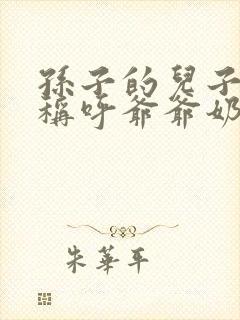 孫子的兒子
稱呼爺爺奶
朱華平